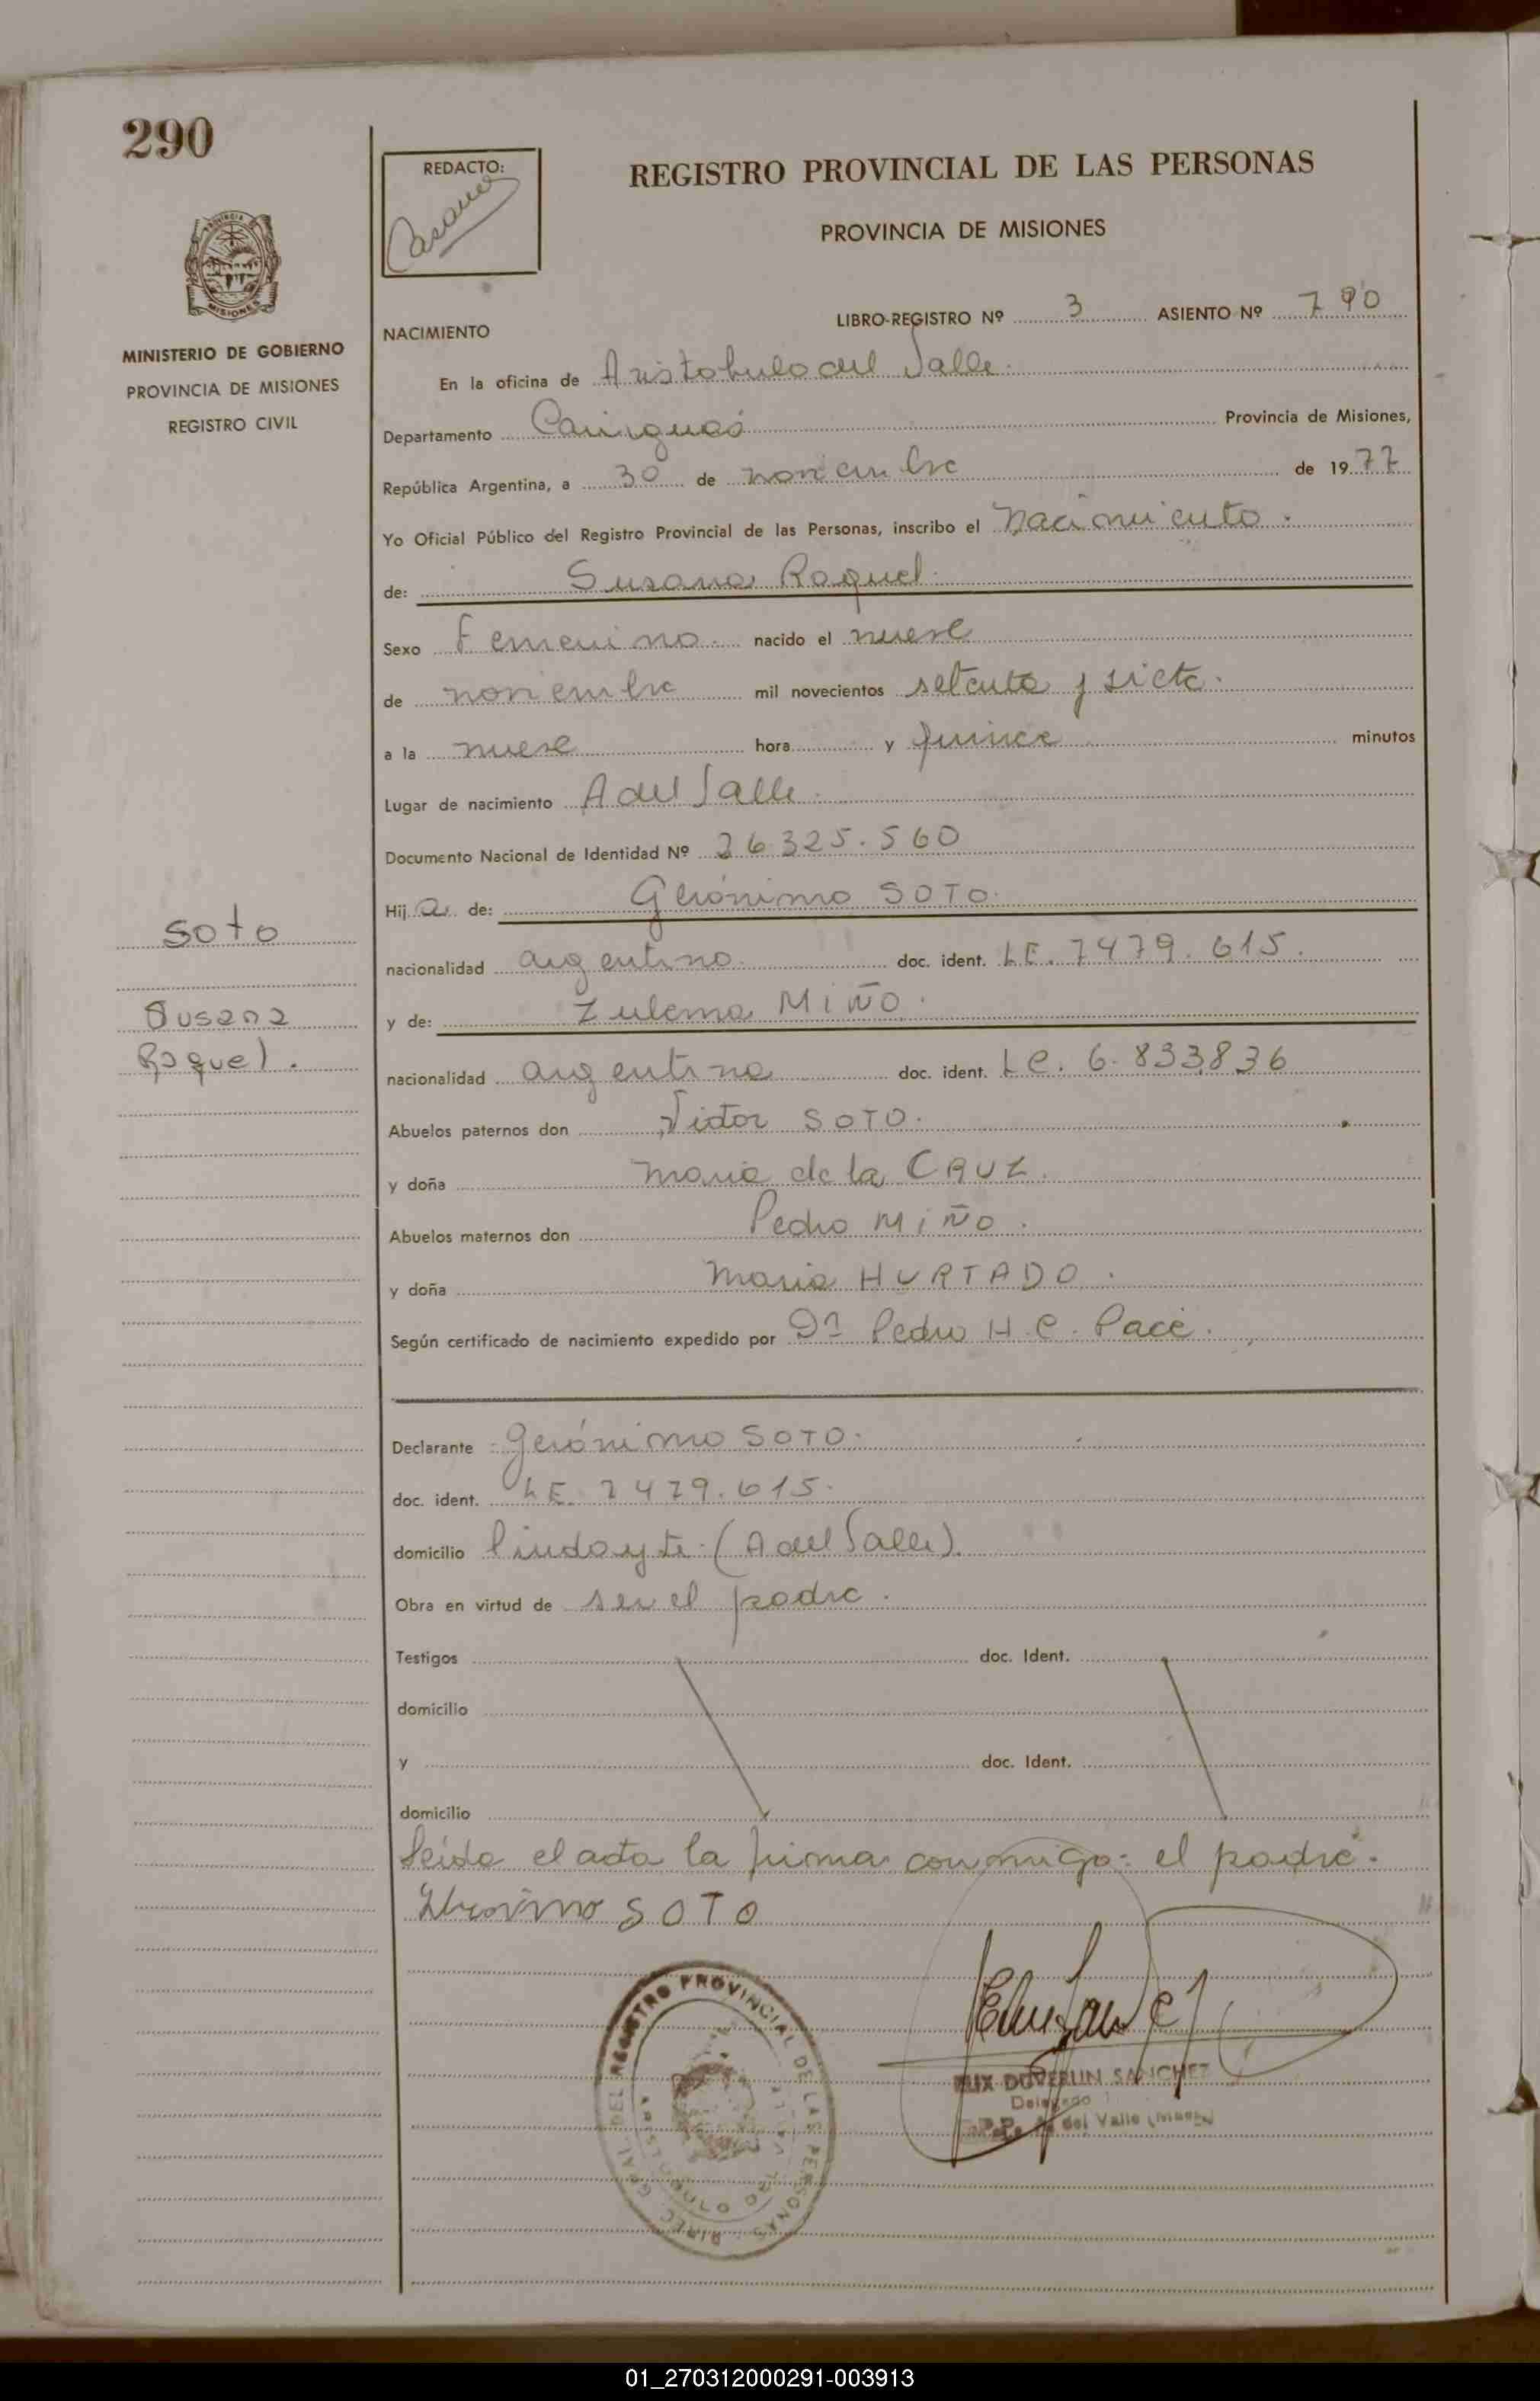 290
REDACTO:
REGISTRO PROVINCIAL DE LAS PERSONAS
PROVINCIA DE MISIONES
MISIONES
MINISTERIO DE GOBIERNO
PROVINCIA DE MISIONES
REGISTRO CIVIL
NACIMIENTO
LIBRO-REGISTRO Nº 3 ASIENTO Nº 790
En la oficina de Aristobulo del Valle.
Departamento Cainguás Provincia de Misiones,
República Argentina, a 30 de noviembre de 1977
Yo Oficial Público del Registro Provincial de las Personas, inscribo el nacimiento.
de: Susana Raquel.
Sexo Femenino. nacido el nueve
de noviembre mil novecientos setenta y siete.
a la nueve hora y quince minutos
Lugar de nacimiento A del Valle.
Documento Nacional de Identidad Nº 26.325.560
Hij a de: Gerónimo SOTO.
nacionalidad argentino. doc. ident. LE. 7479.615.
y de: Zulema MIÑO.
nacionalidad argentina doc. ident. LC. 6.833.836
Abuelos paternos don Victor SOTO.
y doña Maria de la CRUZ.
Abuelos maternos don Pedro MIÑO.
y doña Maria HURTADO.
Según certificado de nacimiento expedido por Dr Pedro H. C. Pace.
Soto
Susana
Raquel.
Declarante Gerónimo SOTO.
doc. ident. LE. 7479.615.
domicilio Pindayte. (A del Valle).
Obra en virtud de ser el padre.
Testigos doc. Ident.
domicilio
y doc. Ident.
domicilio
Leida el acta la firma conmigo: el padre.
Gerónimo SOTO
DIREC. GRAL. DEL REGISTRO PROVINCIAL DE LAS PERSONAS
ARISTOBULO DEL VALLE
ELIX DUVERLIN SANCHEZ
Delegado
del Valle
01_270312000291-003913